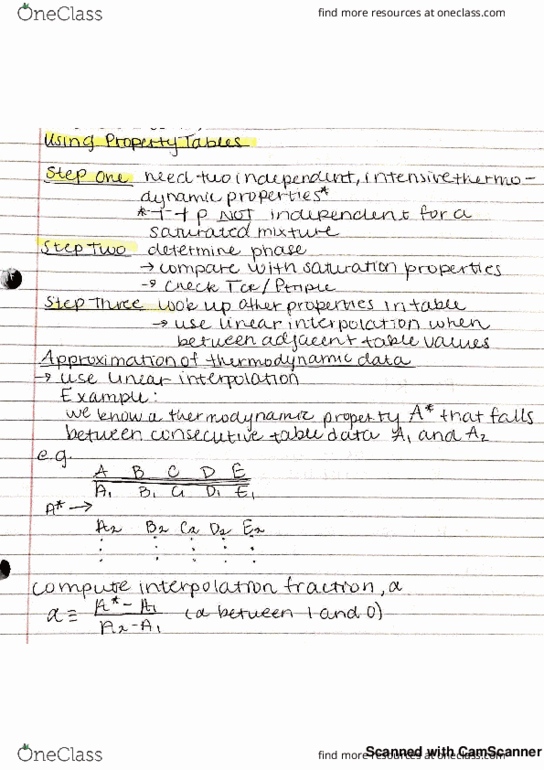 OneClass
find more resources at oneclass.com
Using Property Tables
Step One need two independent, intensive thermo-
dynamic properties*
*T + p NOT independent for a
saturated mixture
Step Two determine phase
→ compare with saturation properties
→ check Tcr / Ptriple
Step Three look up other properties in table
→ use linear interpolation when
between adjacent table values
Approximation of thermodynamic data
→ use linear interpolation
Example:
we know a thermodynamic property A* that falls
between consecutive table data A₁ and A₂
e.g.
A B C D E
A₁ B₁ C₁ D₁ E₁
A* →
A₂ B₂ C₂ D₂ E₂
: : : : :
compute interpolation fraction, α
α ≡ A* - A₁ / A₂ - A₁ (α between 1 and 0)
OneClass
find more resources at oneclass.com
Scanned with CamScanner